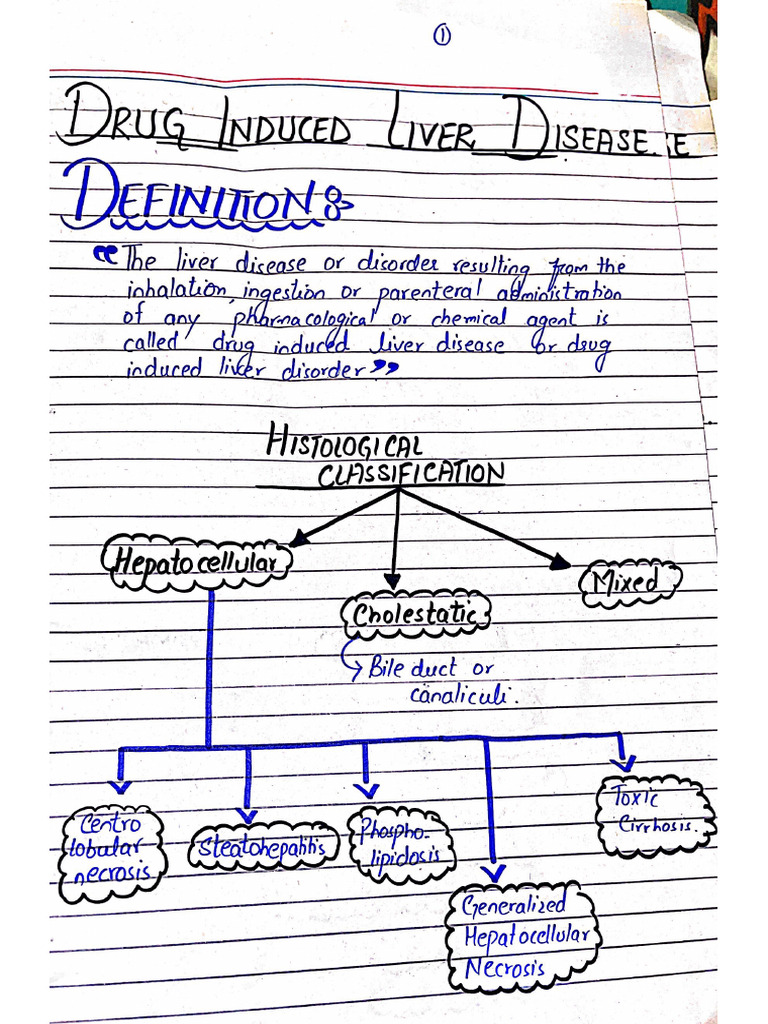 ①
DRUG INDUCED LIVER DISEASE. E
DEFINITION :-
“The liver disease or disorder resulting from the
inhalation, ingestion or parenteral administration
of any pharmacological or chemical agent is
called drug induced liver disease or drug
induced liver disorder”
HISTOLOGICAL
CLASSIFICATION
Hepatocellular
Cholestatic
Mixed
Bile duct or
canaliculi.
Centro
lobular
necrosis
Steatohepatitis
Phospho-
lipidosis
Generalized
Hepatocellular
Necrosis
Toxic
Cirrhosis.